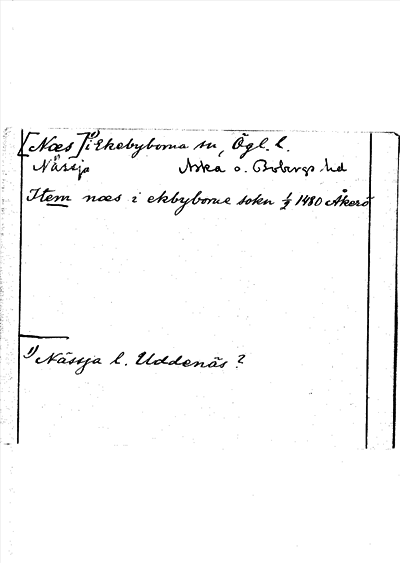 [Næs]¹⁾ i Ekebyborna sn, Ögl. l.
Nässja Aska o. Bobergs hd
Item næs i ekbyborne sokn ½ 1480 Åkerö
¹⁾ Nässja l. Uddenäs?